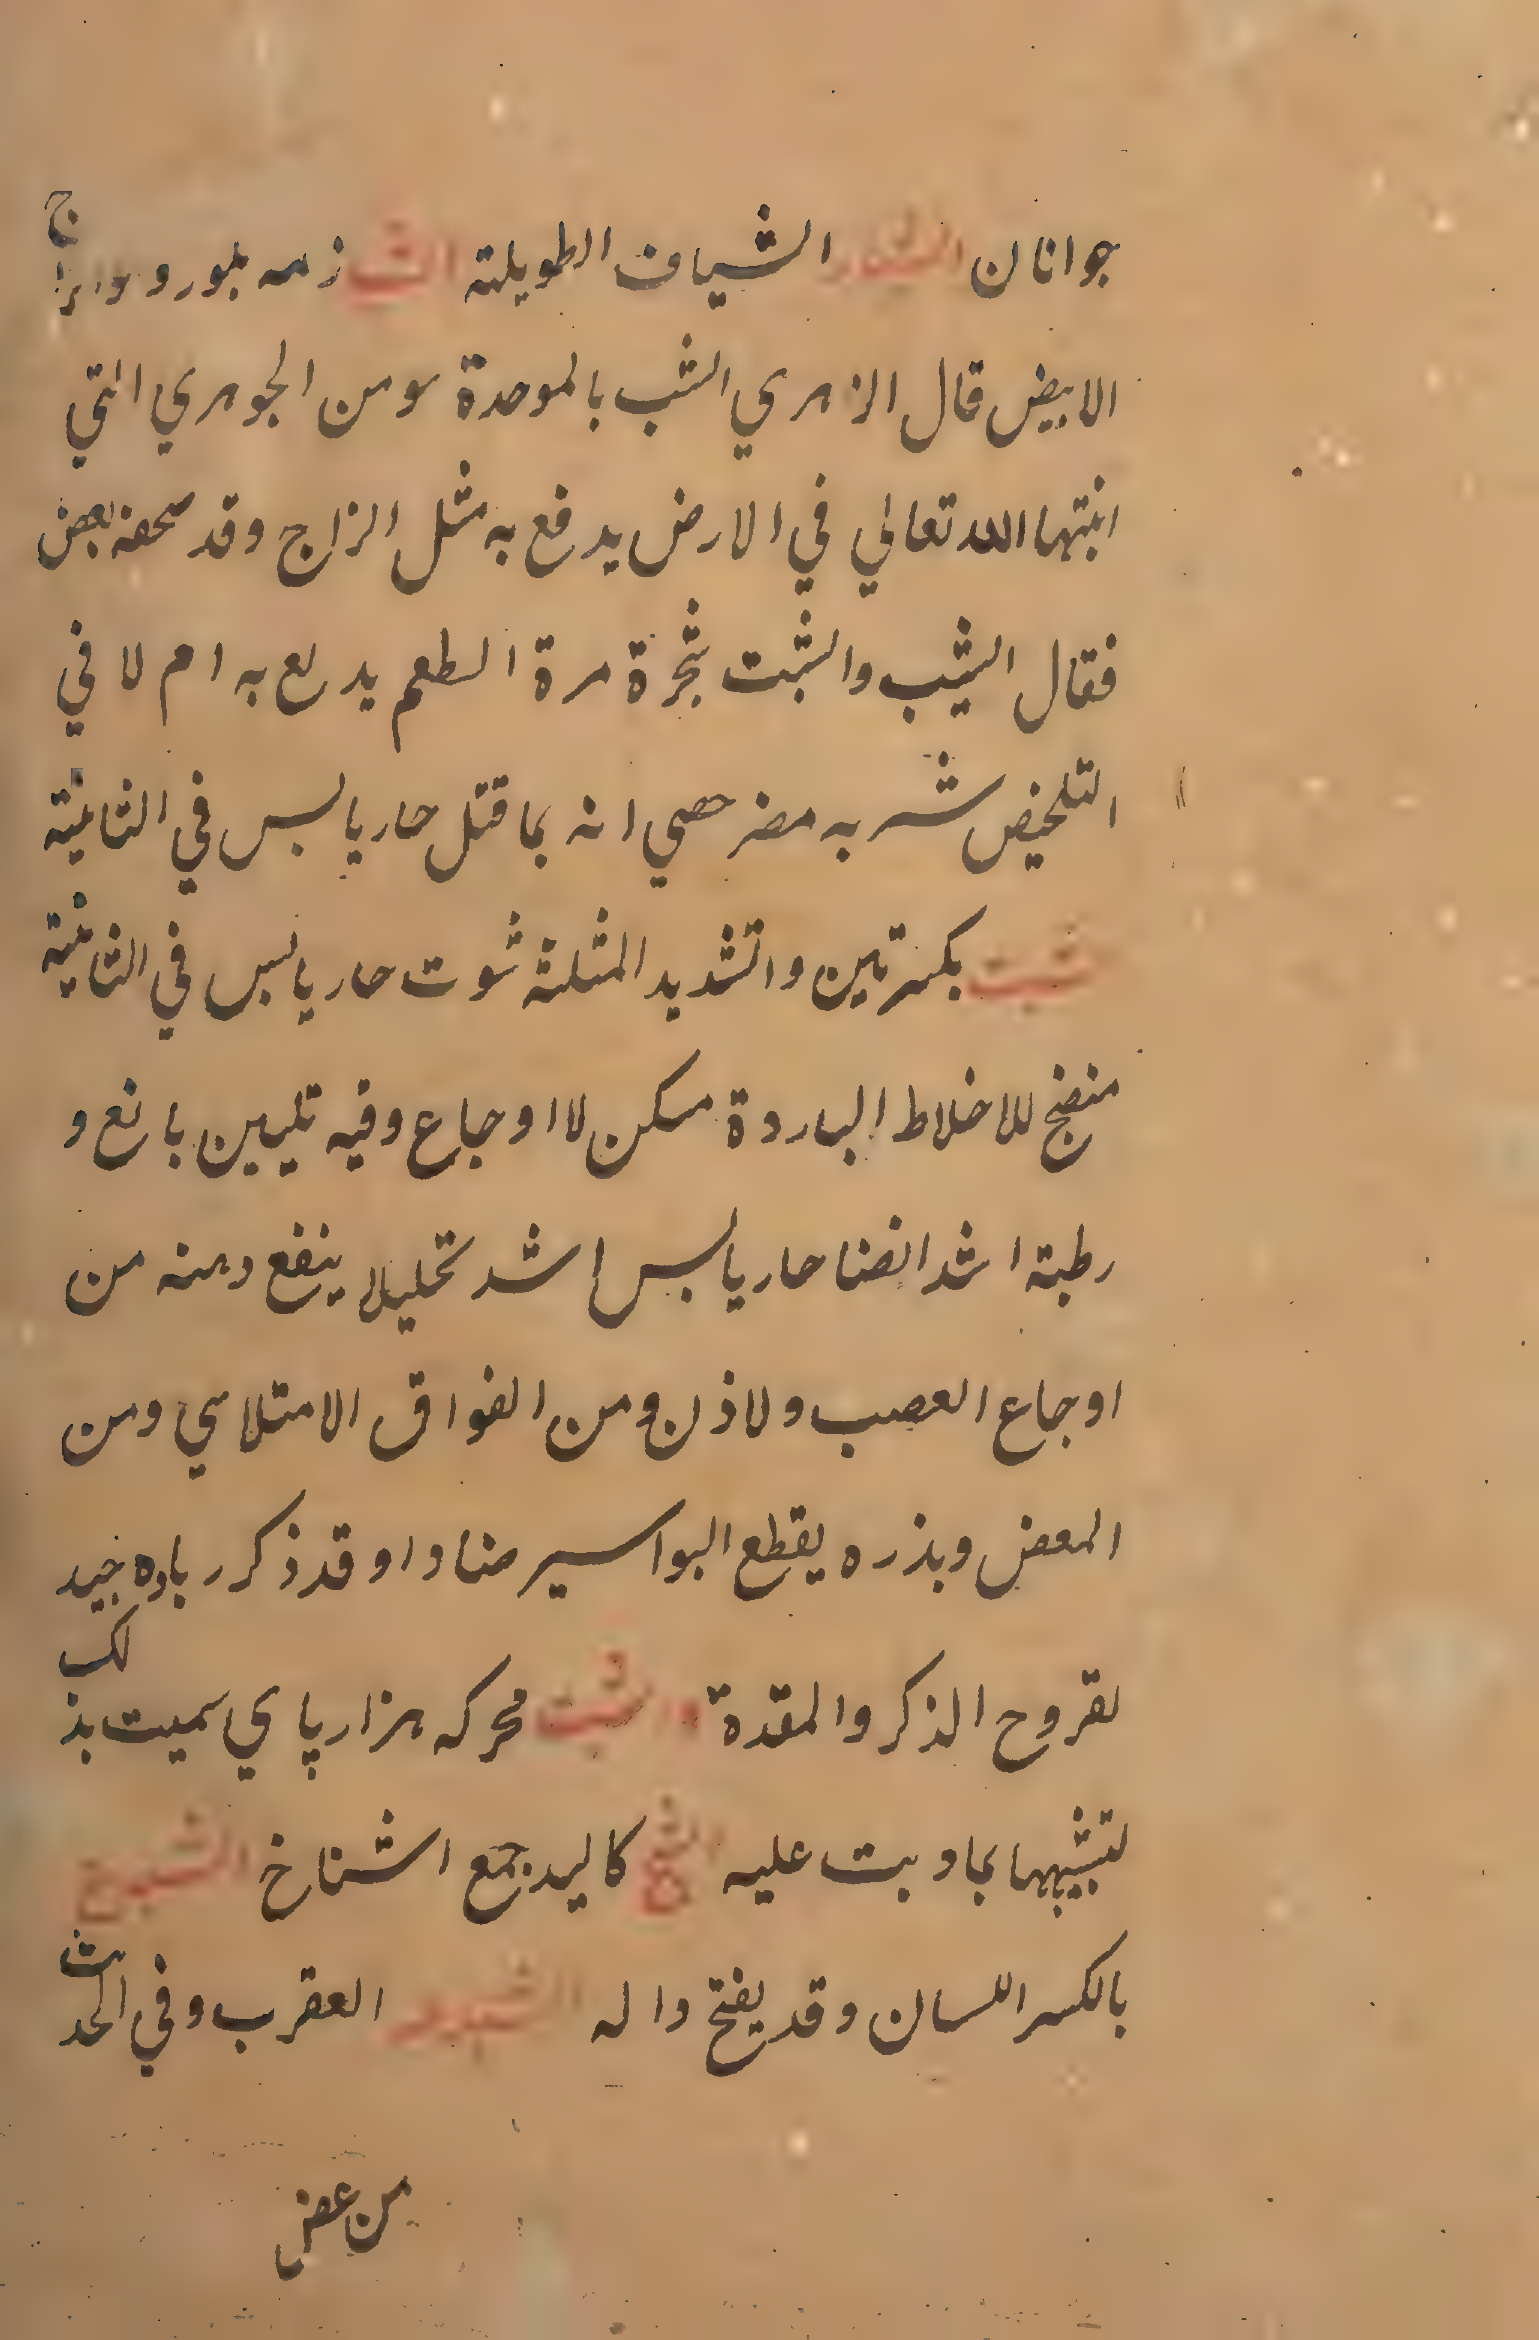 جوانان الشياف الطويلته الشب زمه بلور و
الابيض قال الازهري الشب بالموحدة سو من الجوهري التي
انبتها الله تعالي في الارض يدفع به مثل الزاج وقد صحفه بعض
فقال الشيب والشبت شجرة مرة الطعم يد لع به ام لا في
التلخيص شر به مضر حصي انه بما قتل حار يابس في الثانيته
شبت بكسرتين واتشديد المثلثة ثوت حار يابس في الثانيته
منضج للاخلاط الباردة مسكن لااوجاع وفيه تليين بالغ و
رطبته اشد انضا حار يابس اشد تحليلا ينفع دهنه من
اوجاع العصب ولاذن ومن الفواق الامتلاسي ومن
المعض وبذره يقطع البواسير ضاداو قد ذكر رباده جيد
لقروح الذكر والمقدة والشبت محركه هزارپاي سميت بذلك
لتشبهها بماد بت عليه الشخ كاليد جمع اشناخ الشبدع
بالكسر اللسان وقد يفتح داله الشبدعه العقرب وفي الحدث
من عض